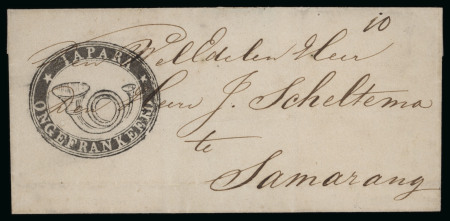 10
JAPARA
ONGEFRANKEERD
WelEdelen Heer
den Heere J. Scheltema
te
Samarang